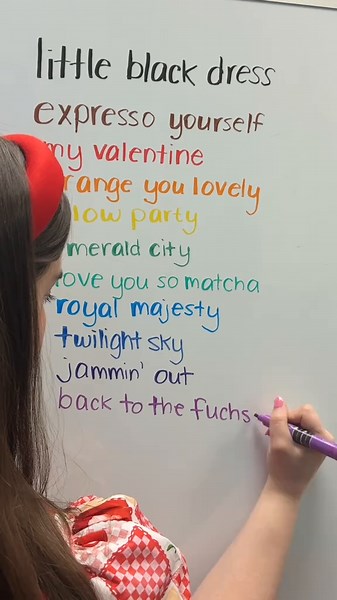 little black dress
expresso yourself
my valentine
range you lovely
low party
merald city
love you so matcha
royal majesty
twilight sky
jammin' out
back to the fuchs